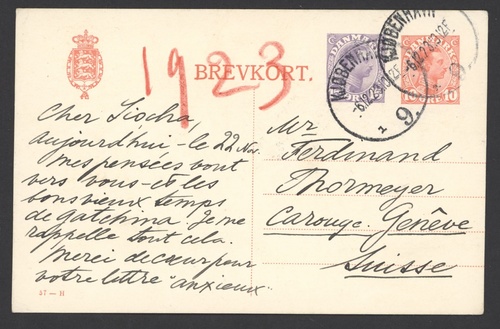 1923
BREVKORT.
DANMARK
KJØBENHAVN
KJØBENHAVN
9
10 10
Cher Siocha,
aujourd'hui - le 22 Nov.
mes pensées vont
vers vous - et les
bons vieux temps
de Gatchina. Je me
rappelle tout cela.
Merci de cœur pour
votre lettre "anxieux"
57 - H
Mr
Ferdinand
Thormeyer
Carouge. Genève
Suisse